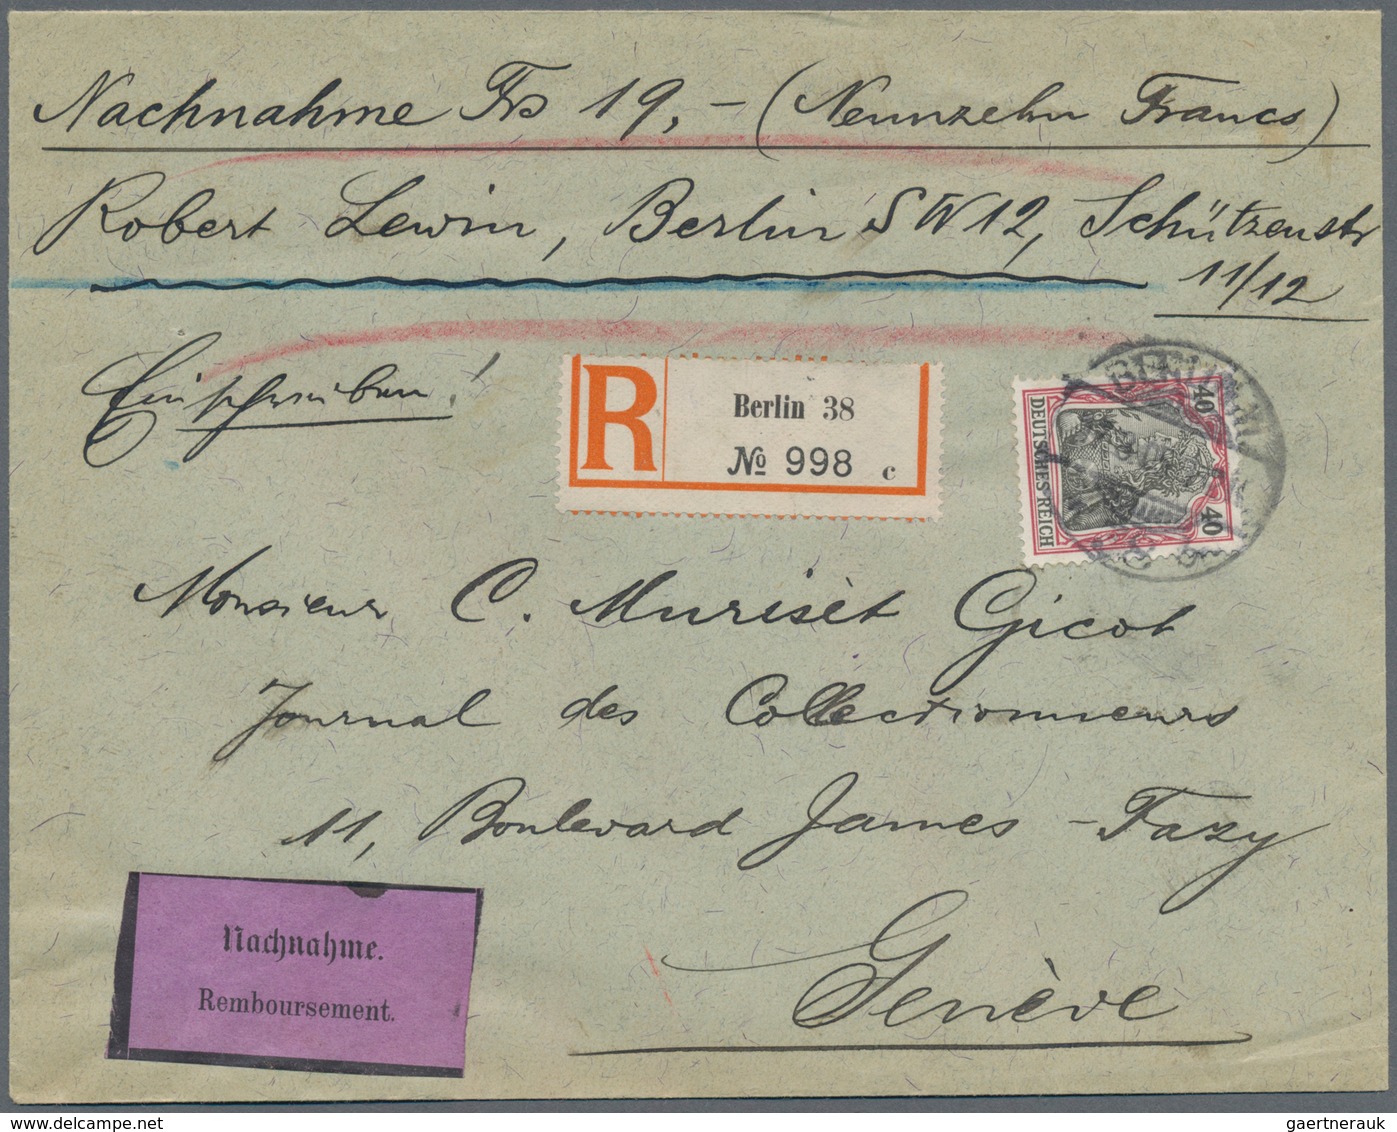 Nachnahme Frs 19,- (Neunzehn Francs)
Robert Lewin, Berlin SW12, Schützenstr
11/12
Einschreiben!
R
Berlin 38
No 998 c
BERLIN
DEUTSCHES REICH
40
40
Monsieur C. Murisèt Gicot
Journal des Collectionneurs
11, Boulevard James-Fazy
Genève
Nachnahme.
Remboursement.
gaertnerauk